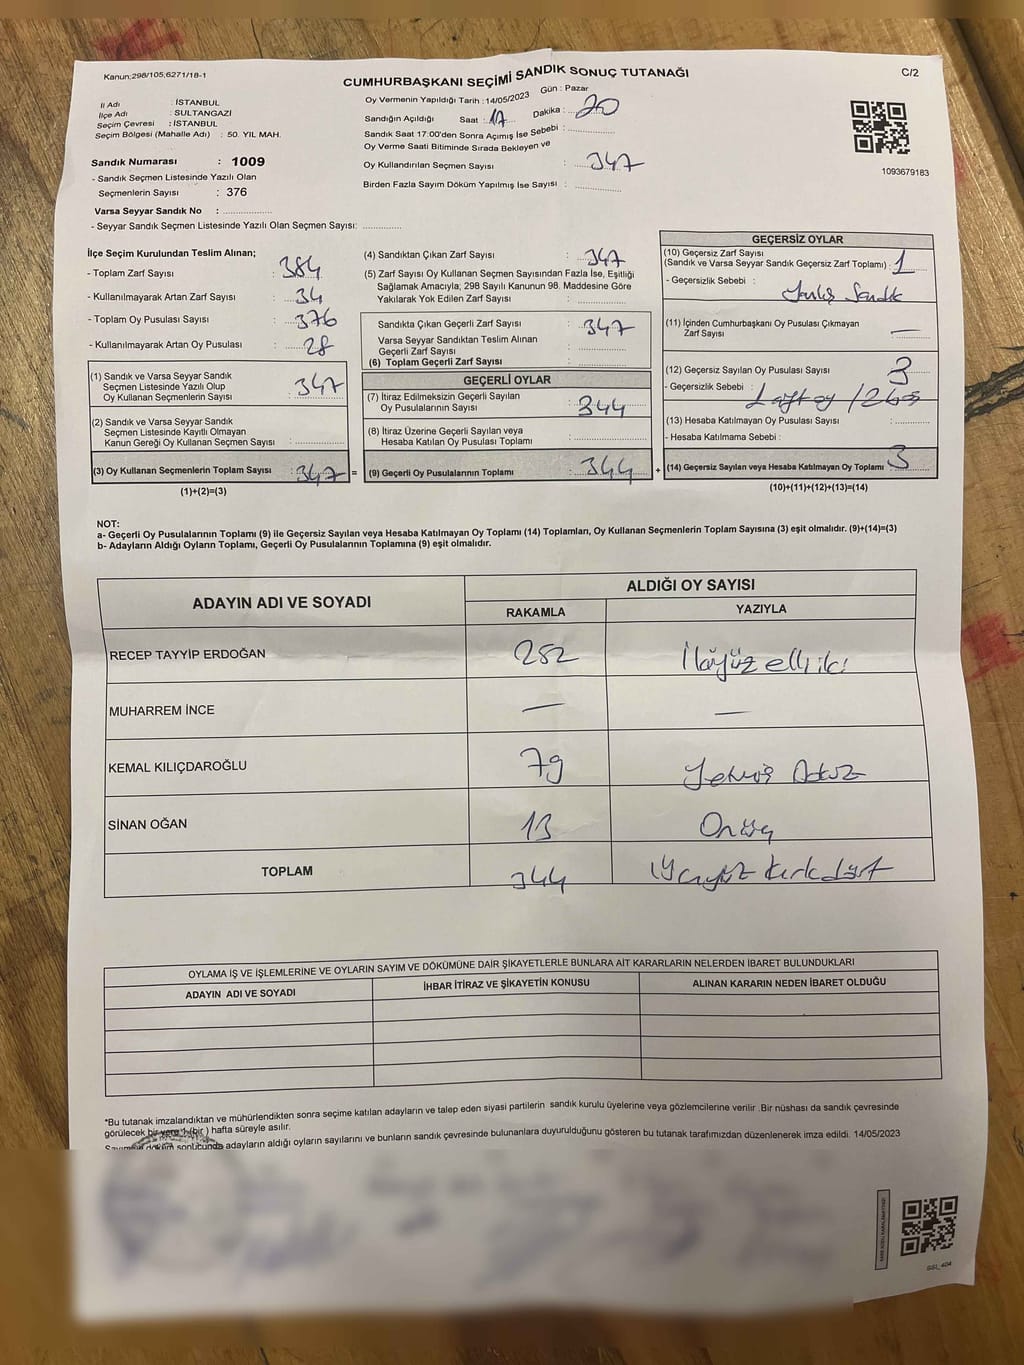 Kanun;298/105;6271/18-1
C/2
CUMHURBAŞKANI SEÇİMİ SANDIK SONUÇ TUTANAĞI
İl Adı : İSTANBUL
İlçe Adı : SULTANGAZİ
Seçim Çevresi : İSTANBUL
Seçim Bölgesi (Mahalle Adı) : 50. YIL MAH.
Sandık Numarası : 1009
- Sandık Seçmen Listesinde Yazılı Olan
Seçmenlerin Sayısı : 376
Varsa Seyyar Sandık No : ..................
- Seyyar Sandık Seçmen Listesinde Yazılı Olan Seçmen Sayısı: ..............
Oy Vermenin Yapıldığı Tarih : 14/05/2023 Gün : Pazar
Sandığın Açıldığı Saat : 17 Dakika : 20
Sandık Saat 17:00'den Sonra Açımış İse Sebebi : ................
Oy Verme Saati Bitiminde Sırada Bekleyen ve
Oy Kullandırılan Seçmen Sayısı : 347
Birden Fazla Sayım Döküm Yapılmış İse Sayısı : ................
1093679183
İlçe Seçim Kurulundan Teslim Alınan;
- Toplam Zarf Sayısı : 384
- Kullanılmayarak Artan Zarf Sayısı : 34
- Toplam Oy Pusulası Sayısı : 376
- Kullanılmayarak Artan Oy Pusulası : 28
(1) Sandık ve Varsa Seyyar Sandık
Seçmen Listesinde Yazılı Olup
Oy Kullanan Seçmenlerin Sayısı : 347
(2) Sandık ve Varsa Seyyar Sandık
Seçmen Listesinde Kayıtlı Olmayan
Kanun Gereği Oy Kullanan Seçmen Sayısı : ..............
(3) Oy Kullanan Seçmenlerin Toplam Sayısı : 347 =
(1)+(2)=(3)
(4) Sandıktan Çıkan Zarf Sayısı : 347
(5) Zarf Sayısı Oy Kullanan Seçmen Sayısından Fazla İse, Eşitliği
Sağlamak Amacıyla; 298 Sayılı Kanunun 98. Maddesine Göre
Yakılarak Yok Edilen Zarf Sayısı : ................
Sandıkta Çıkan Geçerli Zarf Sayısı : 347
Varsa Seyyar Sandıktan Teslim Alınan
Geçerli Zarf Sayısı : ................
(6) Toplam Geçerli Zarf Sayısı : ................
GEÇERLİ OYLAR
(7) İtiraz Edilmeksizin Geçerli Sayılan
Oy Pusulalarının Sayısı : 344
(8) İtiraz Üzerine Geçerli Sayılan veya
Hesaba Katılan Oy Pusulası Toplamı : ................
(9) Geçerli Oy Pusulalarının Toplamı : 344 +
GEÇERSİZ OYLAR
(10) Geçersiz Zarf Sayısı
(Sandık ve Varsa Seyyar Sandık Geçersiz Zarf Toplamı) : 1
- Geçersizlik Sebebi : Yanlış Sandık
(11) İçinden Cumhurbaşkanı Oy Pusulası Çıkmayan
Zarf Sayısı : —
(12) Geçersiz Sayılan Oy Pusulası Sayısı : 3
- Geçersizlik Sebebi :
(13) Hesaba Katılmayan Oy Pusulası Sayısı : ..........
- Hesaba Katılmama Sebebi :
(14) Geçersiz Sayılan veya Hesaba Katılmayan Oy Toplamı : 3
(10)+(11)+(12)+(13)=(14)
NOT:
a- Geçerli Oy Pusulalarının Toplamı (9) ile Geçersiz Sayılan veya Hesaba Katılmayan Oy Toplamı (14) Toplamları, Oy Kullanan Seçmenlerin Toplam Sayısına (3) eşit olmalıdır. (9)+(14)=(3)
b- Adayların Aldığı Oyların Toplamı, Geçerli Oy Pusulalarının Toplamına (9) eşit olmalıdır.
ADAYIN ADI VE SOYADI ALDIĞI OY SAYISI
RAKAMLA YAZIYLA
RECEP TAYYİP ERDOĞAN 252 İkiyüz elli iki
MUHARREM İNCE — —
KEMAL KILIÇDAROĞLU 79 Yetmiş Dokuz
SİNAN OĞAN 13 Onüç
TOPLAM 344 Üçyüz kırk dört
OYLAMA İŞ VE İŞLEMLERİNE VE OYLARIN SAYIM VE DÖKÜMÜNE DAİR ŞİKAYETLERLE BUNLARA AİT KARARLARIN NELERDEN İBARET BULUNDUKLARI
ADAYIN ADI VE SOYADI İHBAR İTİRAZ VE ŞİKAYETİN KONUSU ALINAN KARARIN NEDEN İBARET OLDUĞU
*Bu tutanak imzalandıktan ve mühürlendikten sonra seçime katılan adayların ve talep eden siyasi partilerin sandık kurulu üyelerine veya gözlemcilerine verilir .Bir nüshası da sandık çevresinde
görülecek bir yere 1 (bir ) hafta süreyle asılır.
döküm sonucunda adayların aldığı oyların sayılarını ve bunların sandık çevresinde bulunanlara duyurulduğunu gösteren bu tutanak tarafımızdan düzenlenerek imza edildi. 14/05/2023